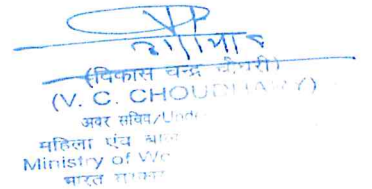 (विकास चन्द्र चौधरी)
(V. C. CHOUDHARY)
अवर सचिव/Under
महिला एंव बाल
Ministry of Wo
भारत सरकार